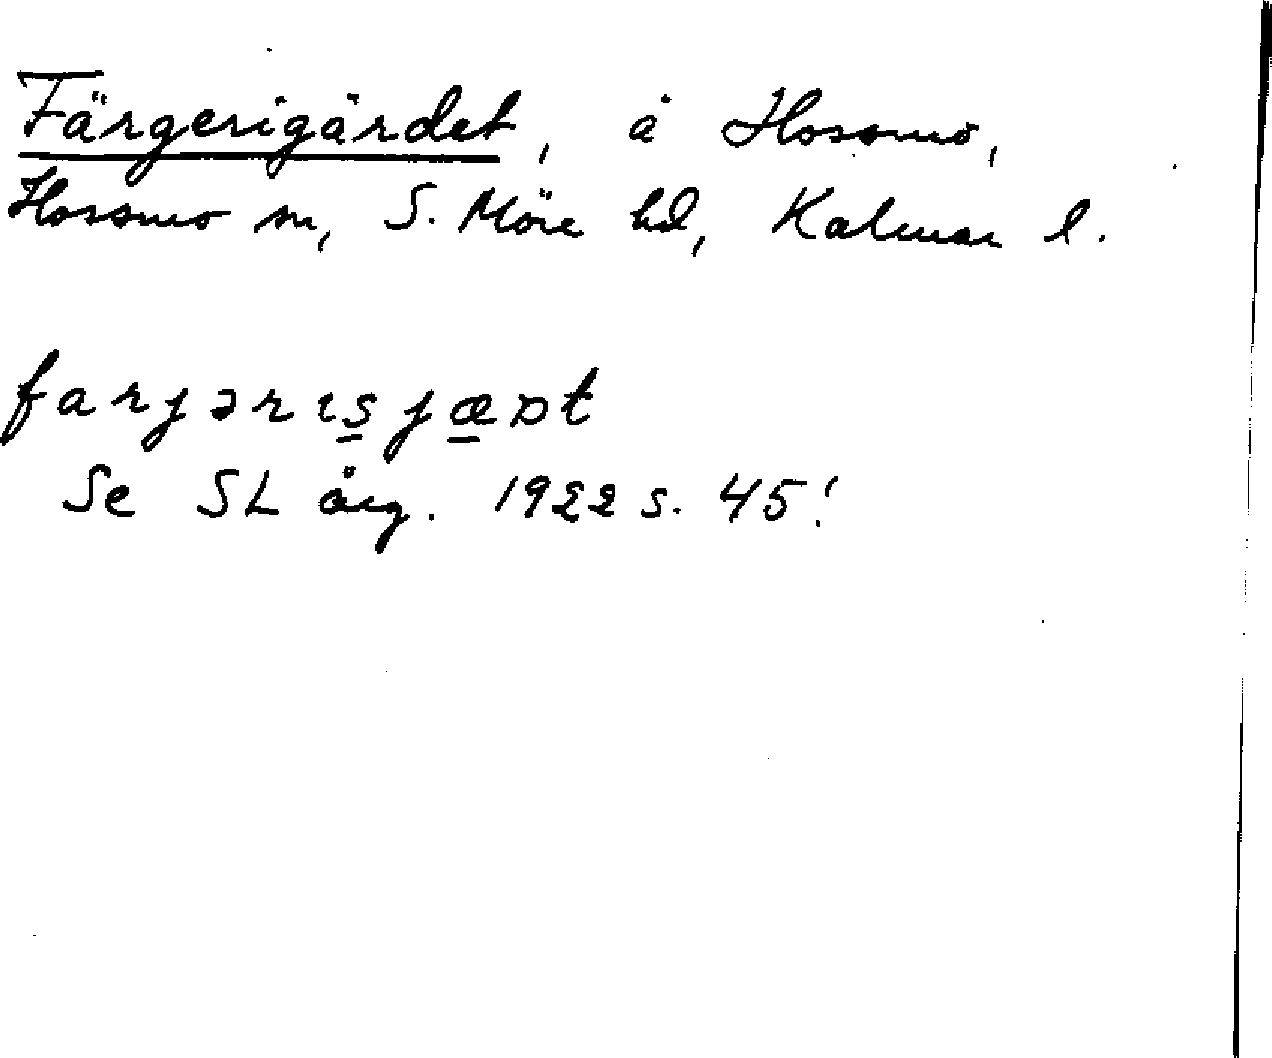 Färgerigärdet, å Hossmo,
Hossmo sn, S. Möre hd, Kalmar l.
farjərɩs̲jæ̲ɒt
Se SL årg. 1922 s. 45!